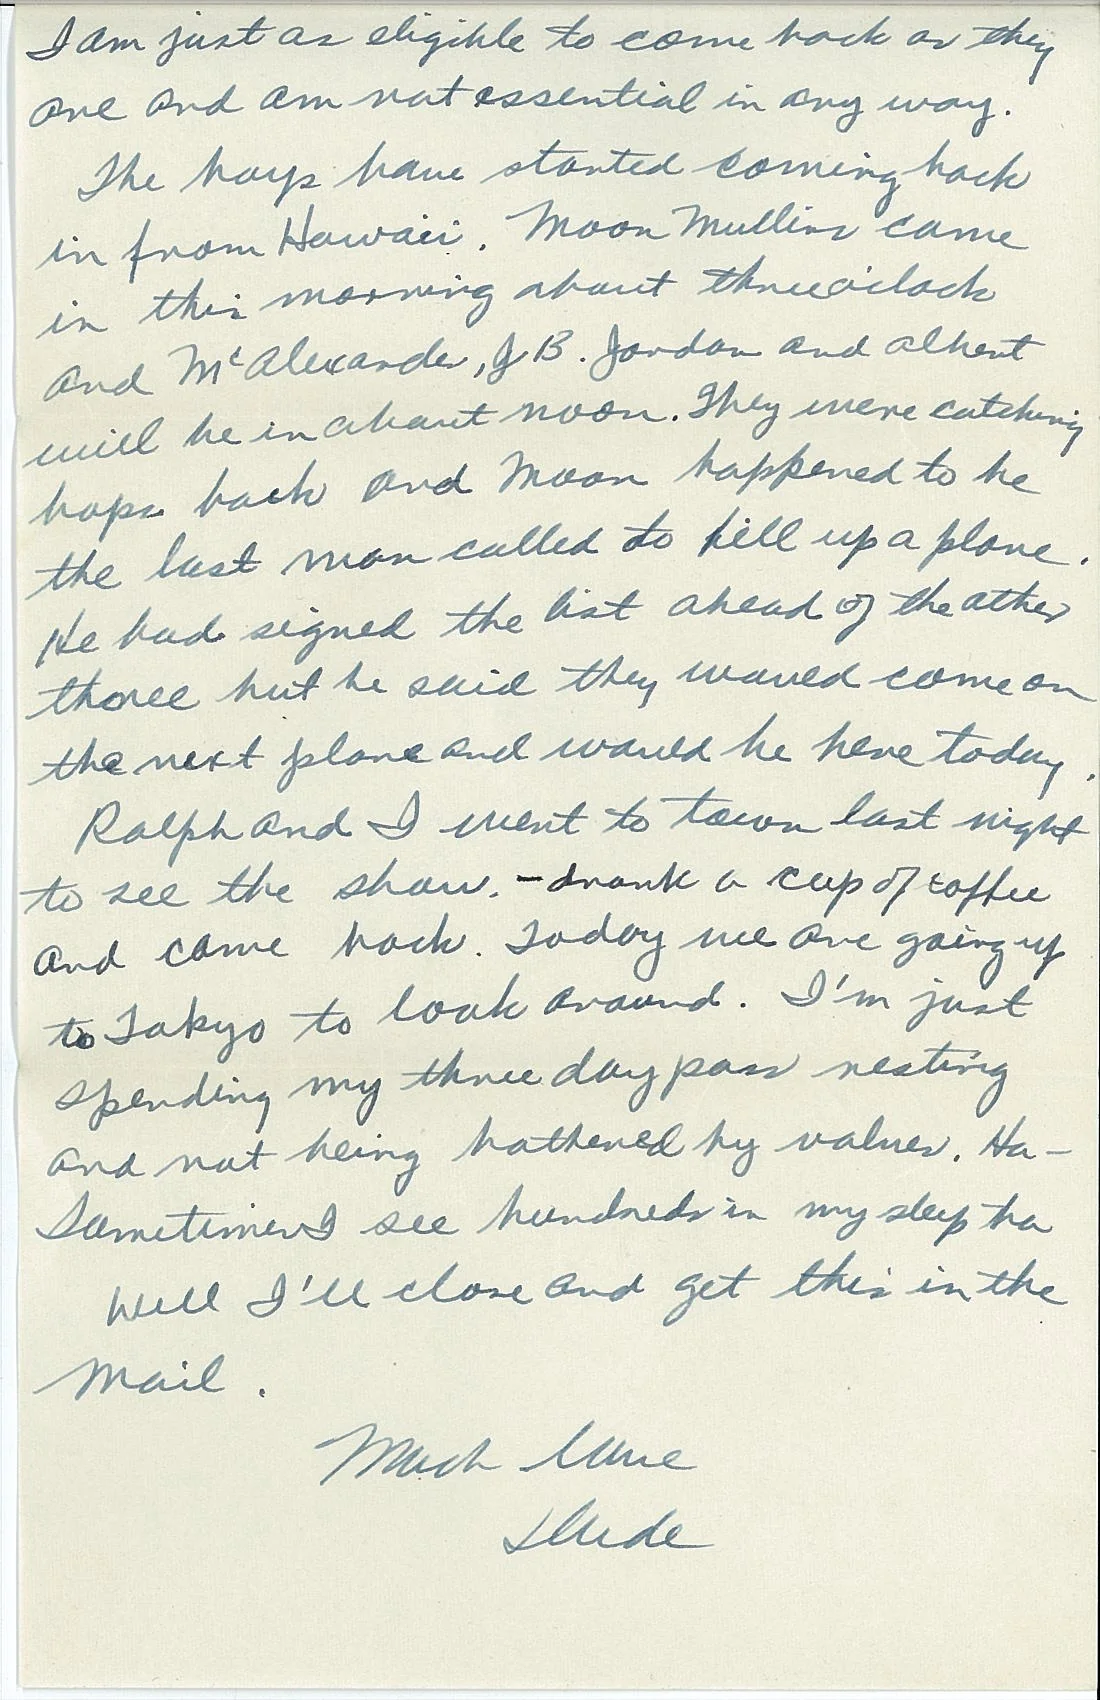 I am just as eligible to come back as they
are and am not essential in any way.
The boys have started coming back
in from Hawaii. Moon Mullins came
in this morning about three o'clock
and McAlexander, J B. Jordan and Albert
will be in about noon. They were catching
hops back and Moon happened to be
the last man called to fill up a plane.
He had signed the list ahead of the other
three but he said they would come on
the next plane and would be here today.
Ralph and I went to town last night
to see the show. - drank a cup of coffee
and came back. Today we are going up
to Tokyo to look around. I'm just
spending my three day pass resting
and not being bothered by valves. Ha -
Sometimes I see hundreds in my sleep ha
Well I'll close and get this in the
Mail.
Much love
Dude